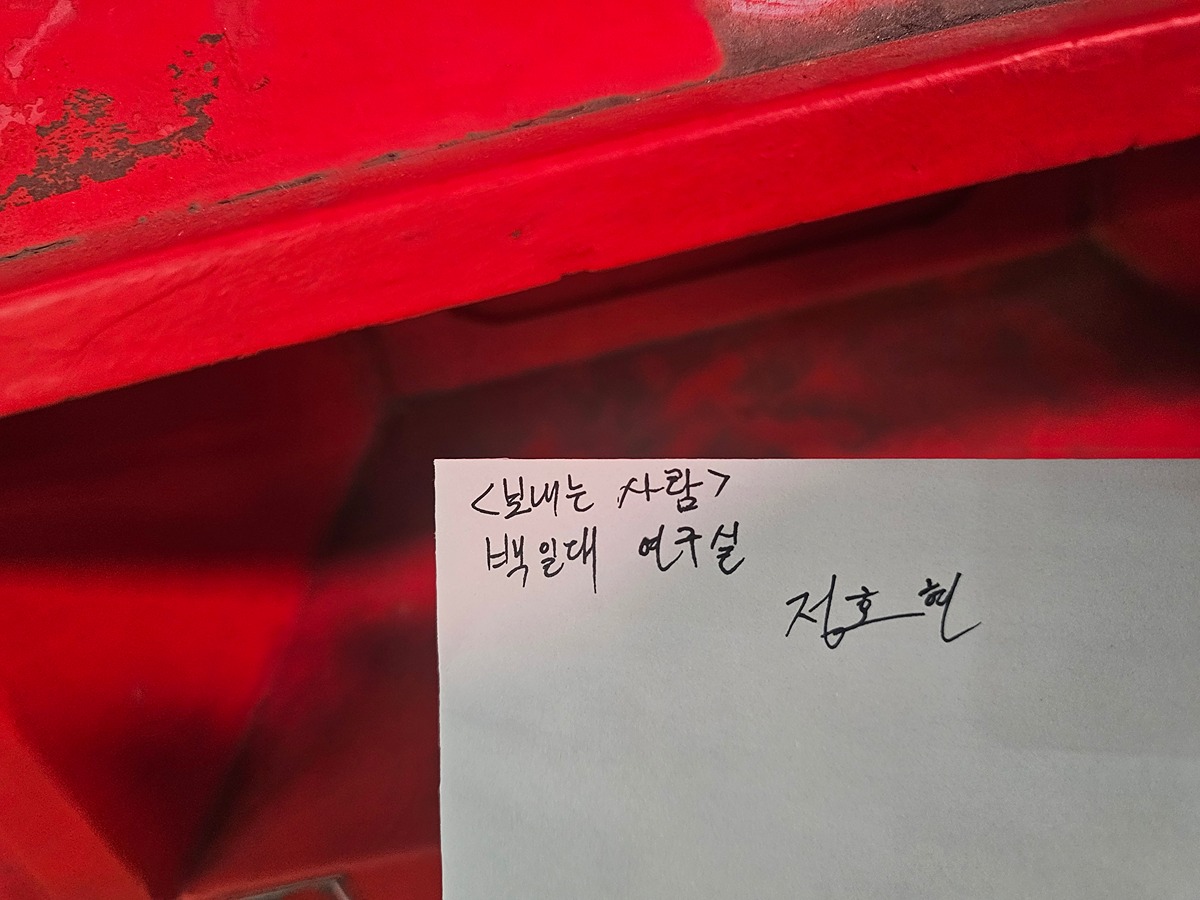 <보내는 사람>
백일대 연구실
정호현